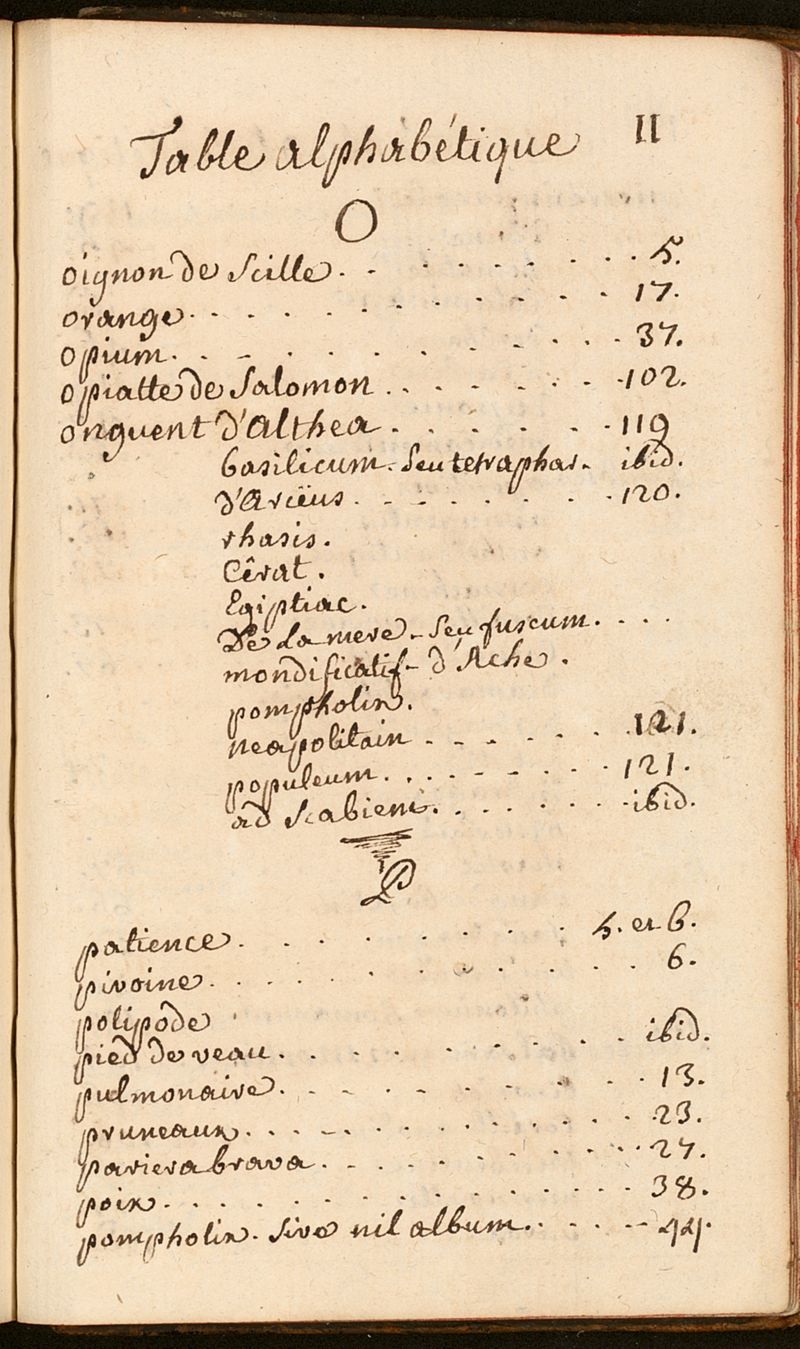 Table alphabétique II
O
oignon de Scille . . . . . . . . . 5.
orange . . . . . . . . . . . 17.
opium . . . . . . . . . . . 37.
opiatte de Salomon . . . . . . . 102.
onguent d'Althea . . . . . . . 119
basilicum. seu tetraphar. ibid.
d'Arcëus . . . . . . . . 120.
rhasis.
Cêrat.
Egiptiac.
De La mere. seu fuscum. . . .
mondificatif d'Ache .
pompholix.
neapolitain . . . . . . 121.
populeum. . . . . . . . 121.
ad Scabiem. . . . . . . ibid.
P
patience . . . . . . . . . 5. et 6.
pivoine . . . . . . . . . . . 6.
polipode
pied de veau . . . . . . . . . ibid.
pulmonaire . . . . . . . . . . 13.
pruneaux . . . . . . . . . . . 23.
parierabrava . . . . . . . . . 27.
poix . . . . . . . . . . . . . 38.
pompholix. sive nil album . . . . . 44.